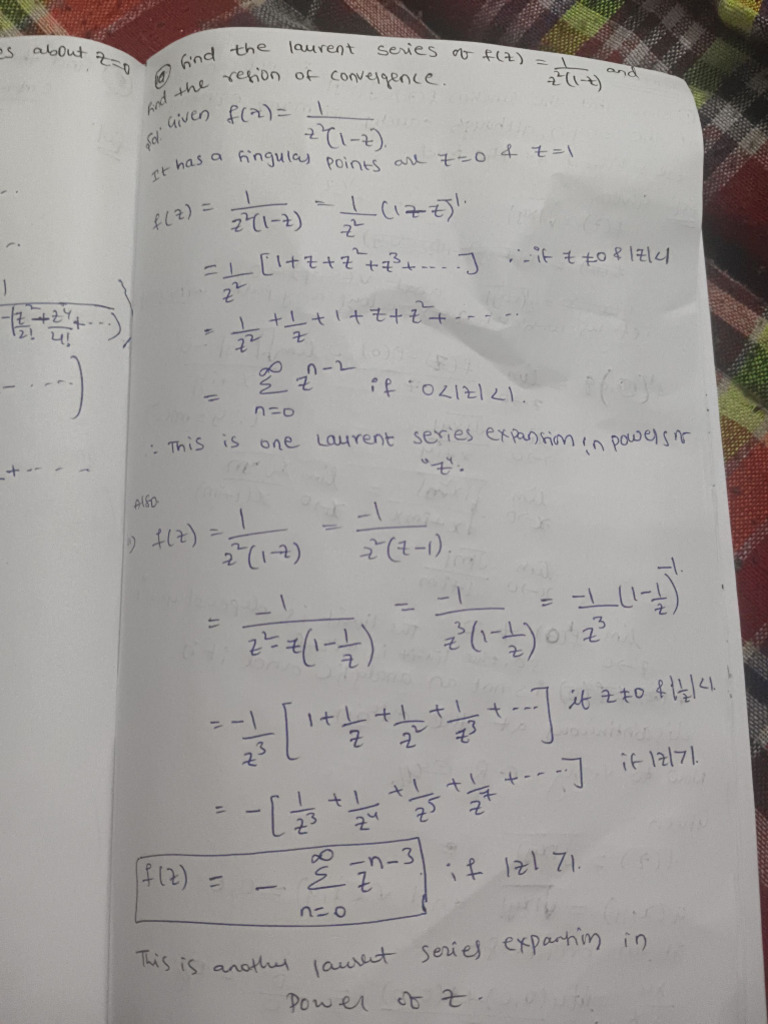 es about z=0
Find the laurent series of f(z) = 1/z²(1-z) and
find the region of convergence.
Sol: Given f(z) = 1/z²(1-z).
It has a singular points are z=0 & z=1
f(z) = 1/z²(1-z) = 1/z² (1-z)⁻¹.
= 1/z² [1+z+z²+z³+....] ∵ if z≠0 & |z|<1
= 1/z² + 1/z + 1 + z + z² + ......
= ∞Σn=0 zⁿ⁻² if 0<|z|<1.
∴ This is one Laurent series expansion in powers of
"z".
Also
ii) f(z) = 1/z²(1-z) = -1/z²(z-1).
= -1/z²·z(1-1/z) = -1/z³(1-1/z) = -1/z³ (1-1/z)⁻¹.
= -1/z³ [1+1/z+1/z²+1/z³+...] if z≠0 & |1/z|<1.
= -[1/z³+1/z⁴+1/z⁵+1/z⁷+....] if |z|>1.
f(z) = - ∞Σn=0 z⁻ⁿ⁻³ if |z|>1.
This is another laurent series expantion in
power of z.
1
-z²/2!+z⁴/4!+...)
- ....)
+....